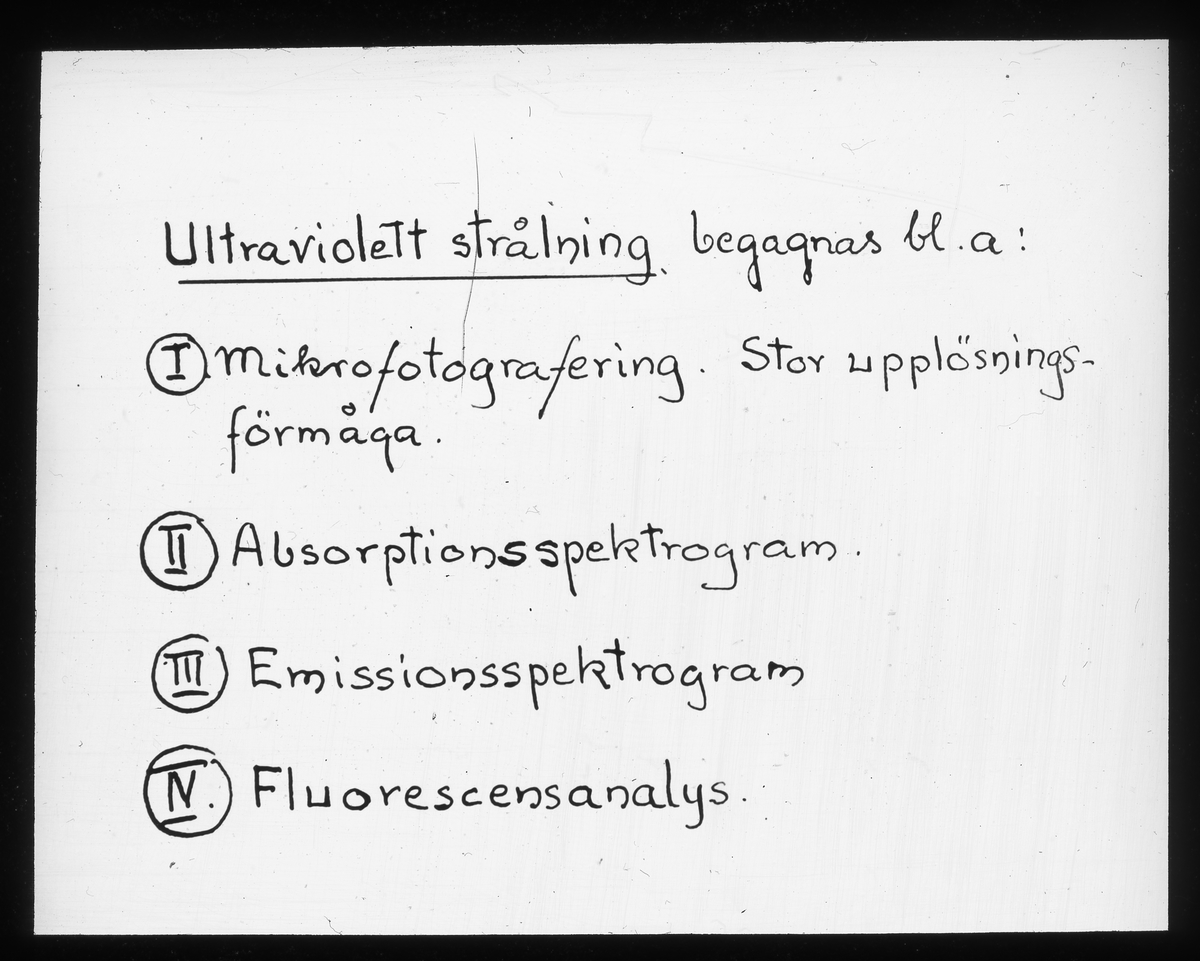 Ultraviolett strålning, begagnas bl.a:
I Mikrofotografering. Stor upplösnings-
förmåga.
II Absorptionsspektrogram.
III Emissionsspektrogram
IV. Fluorescensanalys.